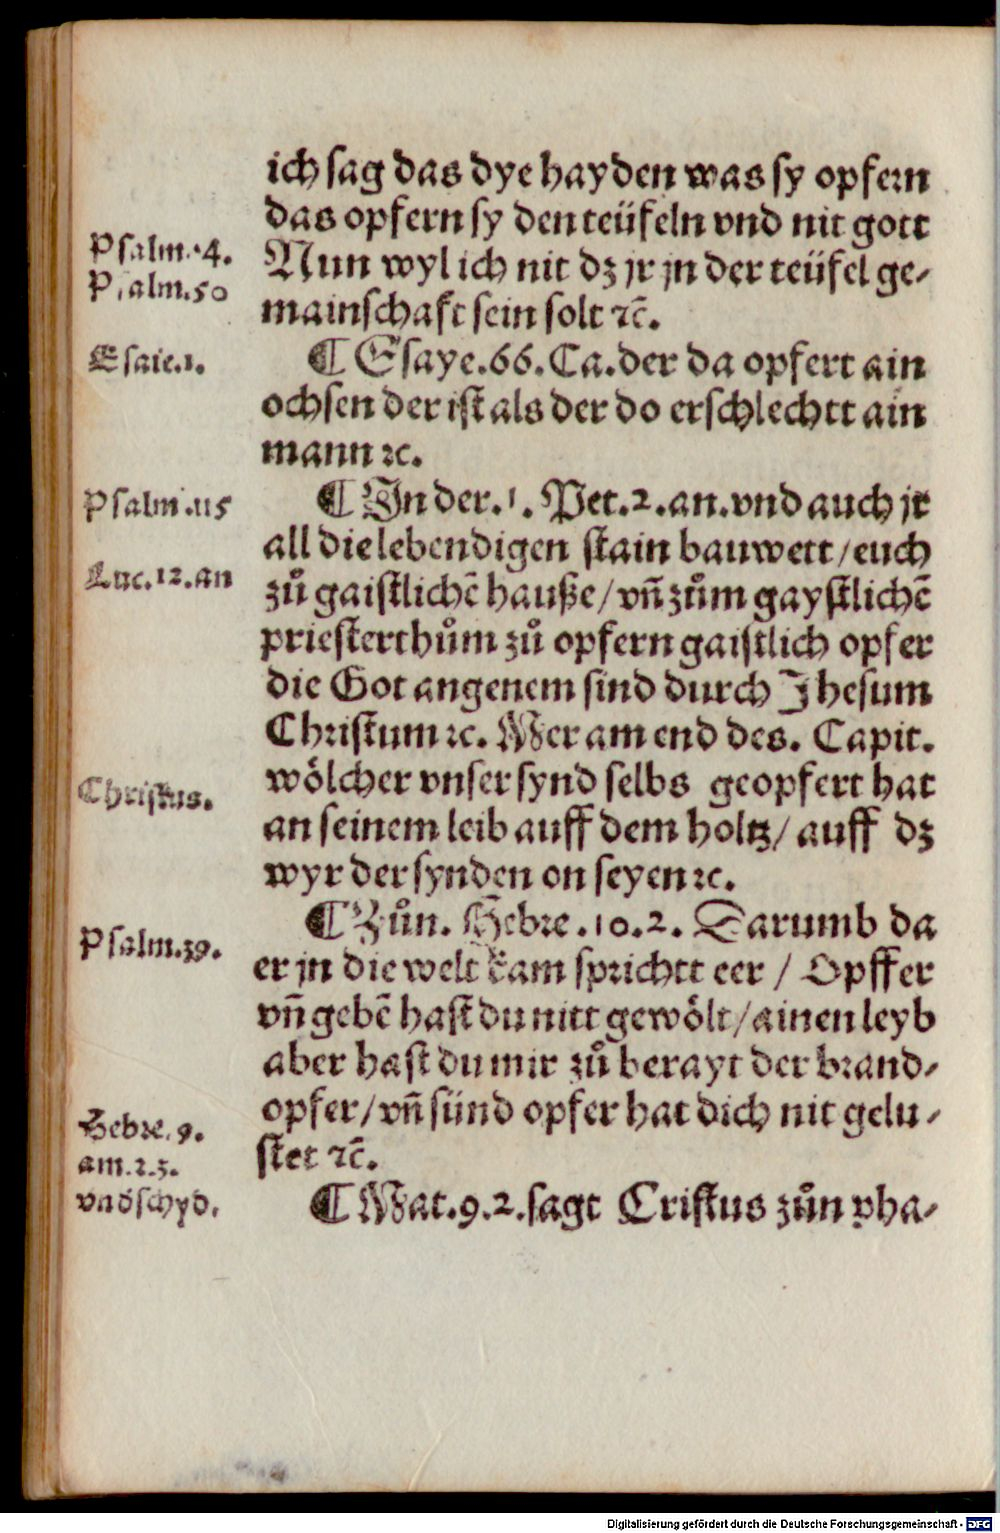 ich sag das dye hayden was sy opfern
das opfern sy den teüfeln vnd nit gott
Psalm.·4.
Nun wyl ich nit dz jr jn der teüfel ge⸗
Psalm.50
mainschaft sein solt ⁊c̄.
Esaie.1.
¶ Esaye.66.Ca.der da opfert ain
ochsen der ist als der do erschlechtt ain
mann ⁊c.
Psalm.115
¶ In der.1. Pet.2.an.vnd auch jr
all die lebendigen stain bauwett/euch
Luc.12.an
zů gaistlichē hauße/vn̄ zům gaystlichē
priesterthům zů opfern gaistlich opfer
die Got angenem sind durch Jhesum
Christum ⁊c. Mer am end des. Capit.
Christus.
wölcher vnser synd selbs geopfert hat
an seinem leib auff dem holtz/ auff dz
wyr der synden on seyen ⁊c.
¶ Zůn. Hebre.10.2. Darumb da
Psalm.39.
er jn die welt kam sprichtt eer / Opffer
vn̄ gebē hast du nitt gewölt/ainen leyb
aber hast du mir zů berayt der brand⸗
opfer/vn̄ sünd opfer hat dich nit gelu⸗
Hebre.9.
stet ⁊c̄.
am.2.5.
vndschyd.
¶ Mat.9.2.sagt Cristus zůn pha⸗
Digitalisierung gefördert durch die Deutsche Forschungsgemeinschaft - DFG